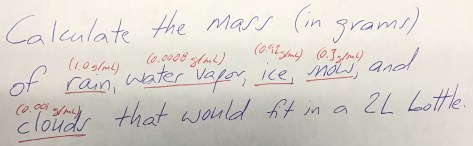 Calculate the mass (in grams)
(1.0 g/mL) (0.0008 g/mL) (0.92 g/mL) (0.3 g/mL)
of rain, water vapor, ice, snow, and
(0.001 g/mL)
clouds that would fit in a 2L bottle.